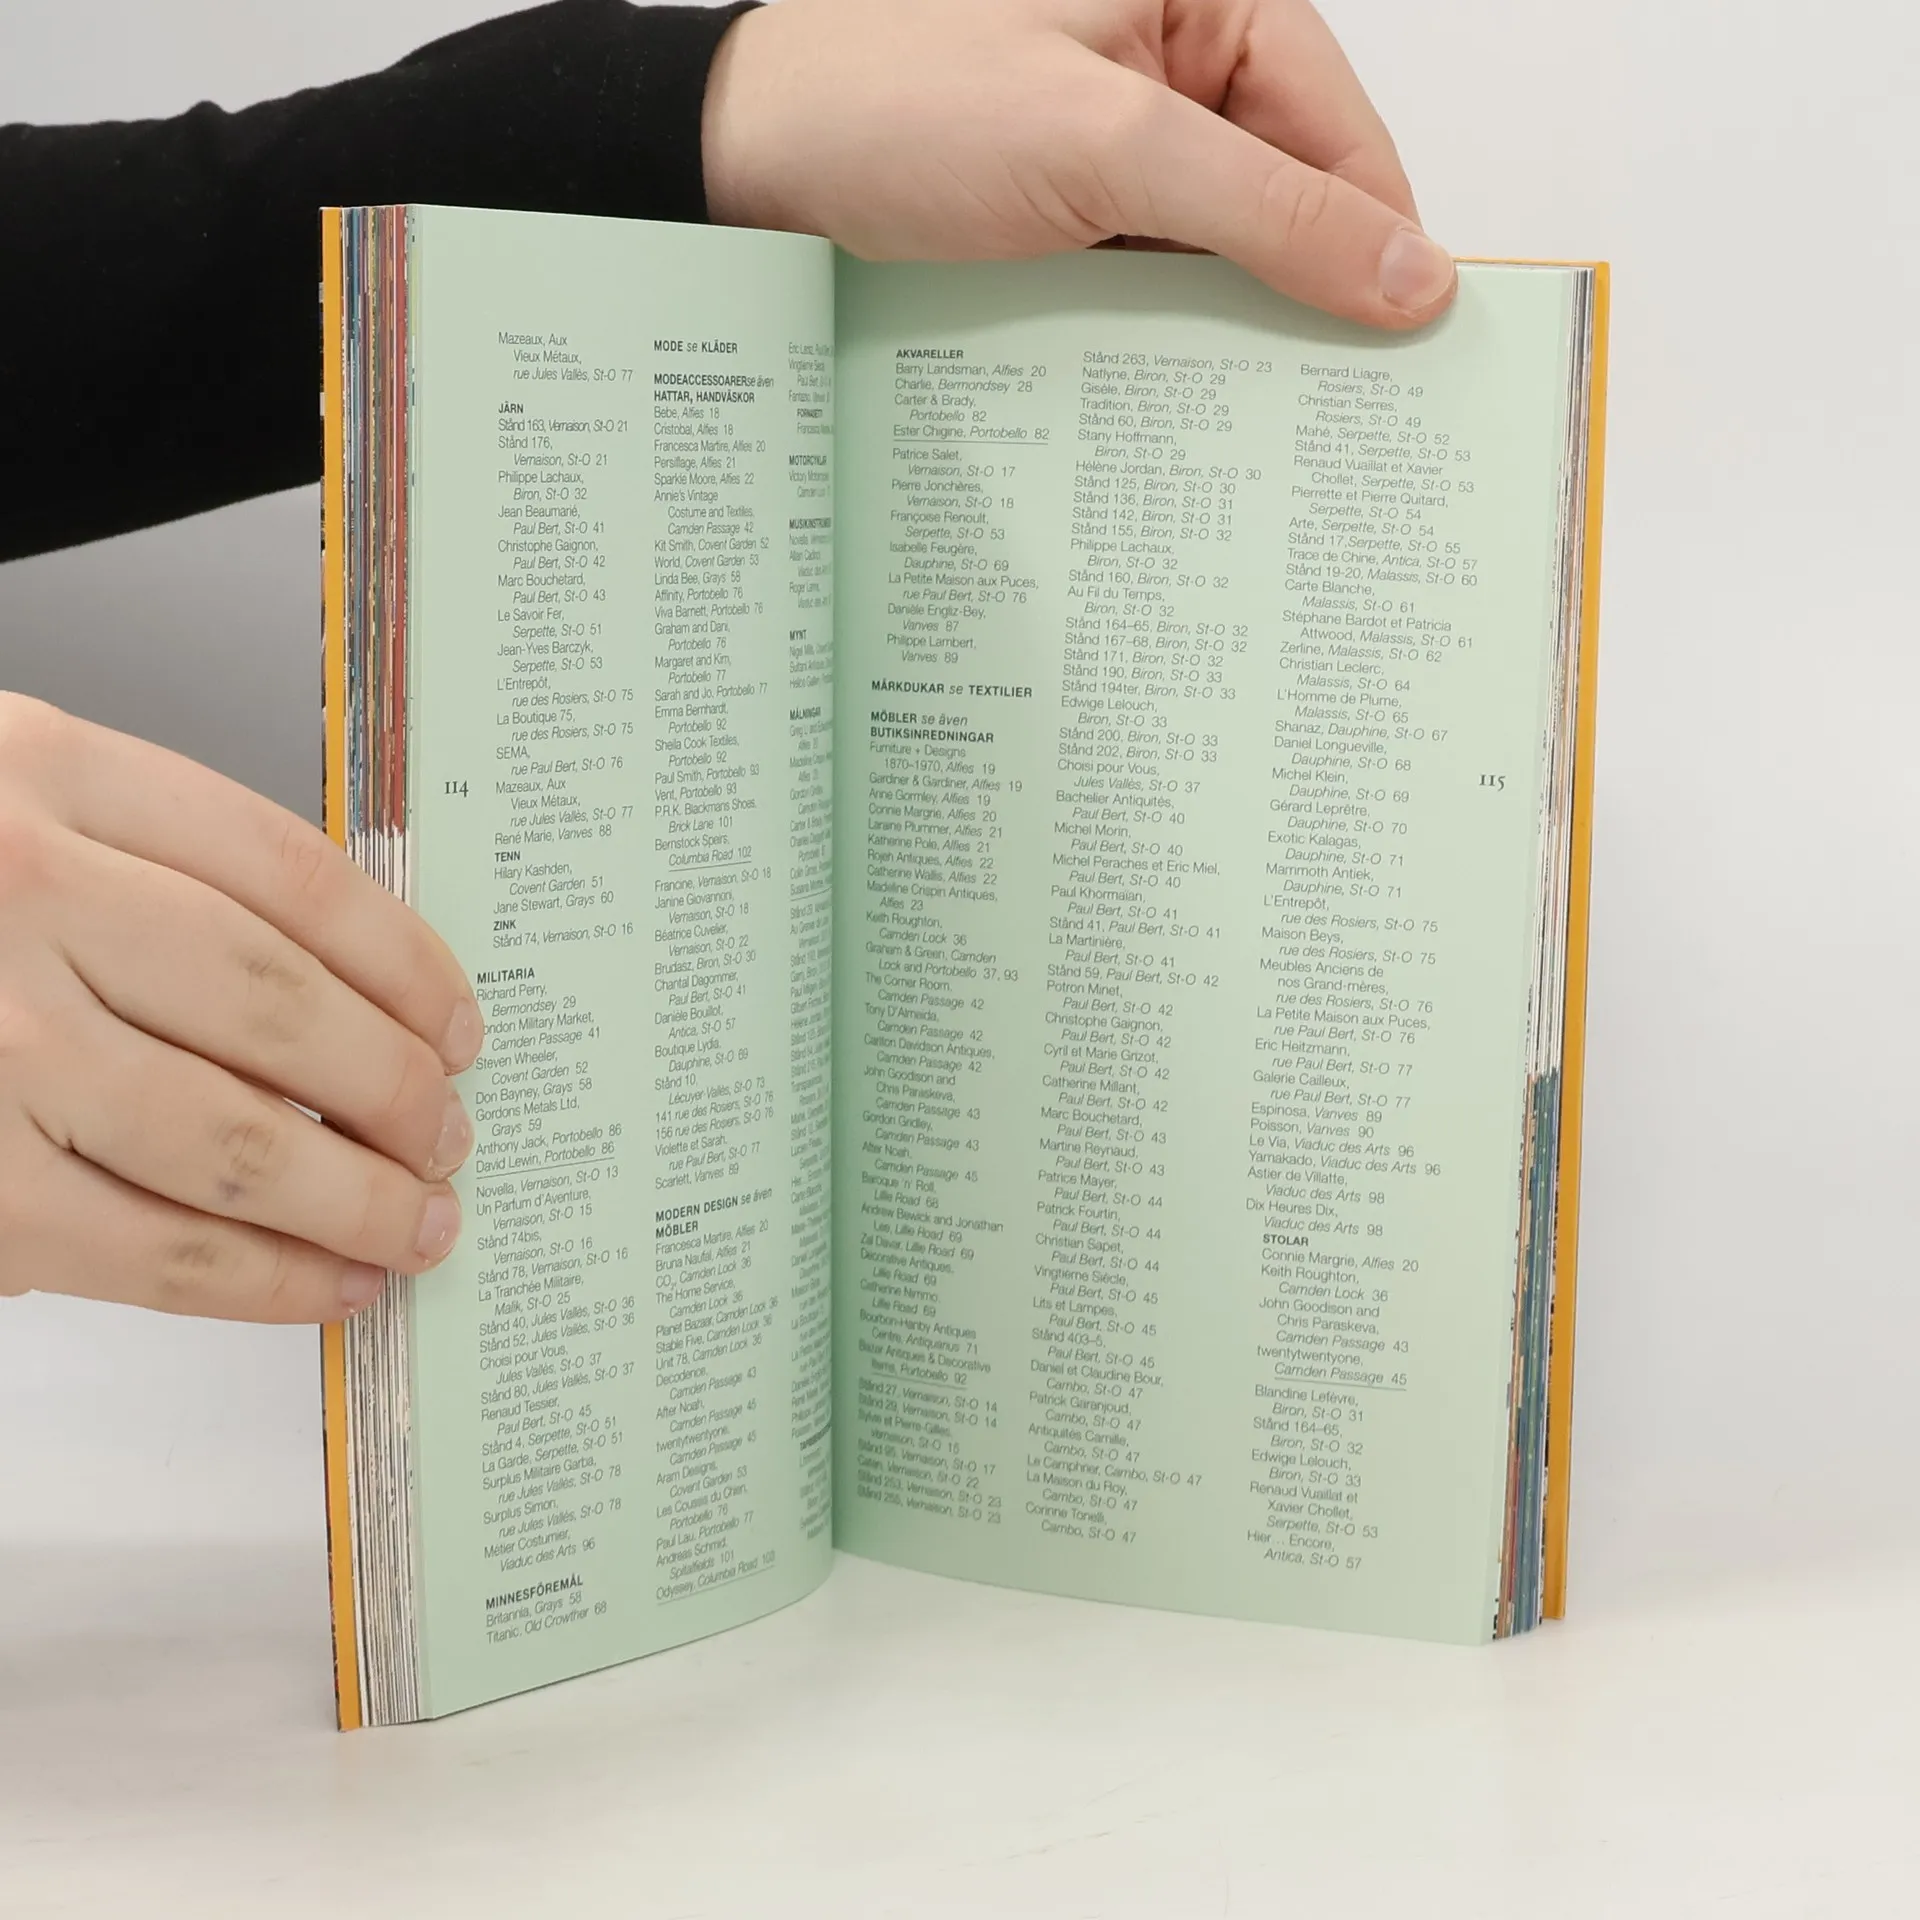 Mazeaux, Aux
Vieux Métaux,
rue Jules Vallès, St-O 77
JÄRN
Stånd 163, Vernaison, St-O 21
Stånd 176,
Vernaison, St-O 21
Philippe Lachaux,
Biron, St-O 32
Jean Beaumarié,
Paul Bert, St-O 41
Christophe Gaignon,
Paul Bert, St-O 42
Marc Bouchetard,
Paul Bert, St-O 43
Le Savoir Fer,
Serpette, St-O 51
Jean-Yves Barczyk,
Serpette, St-O 53
L'Entrepôt,
rue des Rosiers, St-O 75
La Boutique 75,
rue des Rosiers, St-O 75
SEMA,
rue Paul Bert, St-O 76
Mazeaux, Aux
Vieux Métaux,
rue Jules Vallès, St-O 77
René Marie, Vanves 88
TENN
Hilary Kashden,
Covent Garden 51
Jane Stewart, Grays 60
ZINK
Stånd 74, Vernaison, St-O 16
MILITARIA
Richard Perry,
Bermondsey 29
ondon Military Market,
Camden Passage 41
Steven Wheeler,
Covent Garden 52
Don Bayney, Grays 58
Gordons Metals Ltd,
Grays 59
Anthony Jack, Portobello 86
David Lewin, Portobello 86
Novella, Vernaison, St-O 13
Un Parfum d'Aventure,
Vernaison, St-O 15
Stånd 74bis,
Vernaison, St-O 16
Stånd 78, Vernaison, St-O 16
La Tranchée Militaire,
Malik, St-O 25
Stånd 40, Jules Vallès, St-O 36
Stånd 52, Jules Vallès, St-O 36
Choisi pour Vous,
Jules Vallès, St-O 37
Stånd 80, Jules Vallès, St-O 37
Renaud Tessier,
Paul Bert, St-O 45
Stånd 4, Serpette, St-O 51
La Garde, Serpette, St-O 51
Surplus Militaire Garba,
rue Jules Vallès, St-O 78
Surplus Simon,
rue Jules Vallès, St-O 78
Métier Costumier,
Viaduc des Arts 96
MINNESFÖREMÅL
Britannia, Grays 58
Titanic, Old Crowther 68
114
MODE se KLÄDER
MODEACCESSOARER se även
HATTAR, HANDVÄSKOR
Bebe, Alfies 18
Cristobal, Alfies 18
Francesca Martire, Alfies 20
Persiflage, Alfies 21
Sparkle Moore, Alfies 22
Annie's Vintage
Costume and Textiles,
Camden Passage 42
Kit Smith, Covent Garden 52
World, Covent Garden 53
Linda Bee, Grays 58
Affinity, Portobello 76
Viva Barnett, Portobello 76
Graham and Dani,
Portobello 76
Margaret and Kim,
Portobello 77
Sarah and Jo, Portobello 77
Emma Bernhardt,
Portobello 92
Sheila Cook Textiles,
Portobello 92
Paul Smith, Portobello 93
Vent, Portobello 93
P.R.K. Blackmans Shoes,
Brick Lane 101
Bernstock Speirs,
Columbia Road 102
Francine, Vernaison, St-O 18
Janine Giovannoni,
Vernaison, St-O 18
Béatrice Cuvelier,
Vernaison, St-O 22
Brudasz, Biron, St-O 30
Chantal Dagommer,
Paul Bert, St-O 41
Danièle Bouillot,
Antica, St-O 57
Boutique Lydia,
Dauphine, St-O 69
Stånd 10,
Lécuyer-Vallès, St-O 73
141 rue des Rosiers, St-O 76
156 rue des Rosiers, St-O 76
Violette et Sarah,
rue Paul Bert, St-O 77
Scarlett, Vanves 89
MODERN DESIGN se även
MÖBLER
Francesca Martire, Alfies 20
Bruna Naufal, Alfies 21
Camden Lock 36
The Home Service,
Camden Lock 36
Planet Bazaar, Camden Lock 36
Stable Five, Camden Lock 36
Unit 78, Camden Lock 36
Decodence,
Camden Passage 43
After Noah,
Camden Passage 45
twentytwentyone,
Camden Passage 45
Aram Designs,
Covent Garden 53
Les Cousins du Chien,
Portobello 76
Paul Lau, Portobello 77
Andreas Schmid,
Spitalfields 101
Odyssey, Columbia Road 103
MOTORCYKLAR
MUSIKINSTRUMENT
MYNT
MÅLNINGAR
AKVARELLER
Barry Landsman, Alfies 20
Charlie, Bermondsey 28
Carter & Brady,
Portobello 82
Ester Chigine, Portobello 82
Patrice Salet,
Vernaison, St-O 17
Pierre Jonchères,
Vernaison, St-O 18
Françoise Renoult,
Serpette, St-O 53
Isabelle Feugère,
Dauphine, St-O 69
La Petite Maison aux Puces,
rue Paul Bert, St-O 76
Danièle Engliz-Bey,
Vanves 87
Philippe Lambert,
Vanves 89
MÄRKDUKAR se TEXTILIER
MÖBLER se även
BUTIKSINREDNINGAR
Furniture + Designs
1870–1970, Alfies 19
Gardiner & Gardiner, Alfies 19
Anne Gormley, Alfies 19
Connie Margrie, Alfies 20
Laraine Plummer, Alfies 21
Katherine Pole, Alfies 21
Rojeh Antiques, Alfies 22
Catherine Wallis, Alfies 22
Madeline Crispin Antiques,
Alfies 23
Keith Roughton,
Camden Lock 36
Graham & Green, Camden
Lock and Portobello 37, 93
The Corner Room,
Camden Passage 42
Tony D'Almeida,
Camden Passage 42
Carlton Davidson Antiques,
Camden Passage 42
John Goodison and
Chris Paraskeva,
Camden Passage 43
Gordon Gridley,
Camden Passage 43
After Noah,
Camden Passage 45
Baroque 'n' Roll,
Lillie Road 68
Andrew Bewick and Jonathan
Lee, Lillie Road 69
Zal Davar, Lillie Road 69
Decorative Antiques,
Lillie Road 69
Catherine Nimmo,
Lillie Road 69
Bourbon-Hanby Antiques
Centre, Antiquarius 71
Bazar Antiques & Decorative
Items, Portobello 92
Stånd 27, Vernaison, St-O 14
Stånd 29, Vernaison, St-O 14
Sylvie et Pierre-Gilles,
Vernaison, St-O 15
Stånd 95, Vernaison, St-O 17
Catan, Vernaison, St-O 22
Stånd 253, Vernaison, St-O 23
Stånd 255, Vernaison, St-O 23
Stånd 263, Vernaison, St-O 23
Natlyne, Biron, St-O 29
Gisèle, Biron, St-O 29
Tradition, Biron, St-O 29
Stånd 60, Biron, St-O 29
Stany Hoffmann,
Biron, St-O 29
Hélène Jordan, Biron, St-O 30
Stånd 125, Biron, St-O 30
Stånd 136, Biron, St-O 31
Stånd 142, Biron, St-O 31
Stånd 155, Biron, St-O 32
Philippe Lachaux,
Biron, St-O 32
Stånd 160, Biron, St-O 32
Au Fil du Temps,
Biron, St-O 32
Stånd 164–65, Biron, St-O 32
Stånd 167–68, Biron, St-O 32
Stånd 171, Biron, St-O 32
Stånd 190, Biron, St-O 33
Stånd 194ter, Biron, St-O 33
Edwige Lelouch,
Biron, St-O 33
Stånd 200, Biron, St-O 33
Stånd 202, Biron, St-O 33
Choisi pour Vous,
Jules Vallès, St-O 37
Bachelier Antiquités,
Paul Bert, St-O 40
Michel Morin,
Paul Bert, St-O 40
Michel Peraches et Eric Miel,
Paul Bert, St-O 40
Paul Khormaïan,
Paul Bert, St-O 41
Stånd 41, Paul Bert, St-O 41
La Martinière,
Paul Bert, St-O 41
Stånd 59, Paul Bert, St-O 42
Potron Minet,
Paul Bert, St-O 42
Christophe Gaignon,
Paul Bert, St-O 42
Cyril et Marie Grizot,
Paul Bert, St-O 42
Catherine Millant,
Paul Bert, St-O 42
Marc Bouchetard,
Paul Bert, St-O 43
Martine Reynaud,
Paul Bert, St-O 43
Patrice Mayer,
Paul Bert, St-O 44
Patrick Fourtin,
Paul Bert, St-O 44
Christian Sapet,
Paul Bert, St-O 44
Vingtième Siècle,
Paul Bert, St-O 45
Lits et Lampes,
Paul Bert, St-O 45
Stånd 403–5,
Paul Bert, St-O 45
Daniel et Claudine Bour,
Cambo, St-O 47
Patrick Garanjoud,
Cambo, St-O 47
Antiquités Camille,
Cambo, St-O 47
Le Camphrier, Cambo, St-O 47
La Maison du Roy,
Cambo, St-O 47
Corinne Tonelli,
Cambo, St-O 47
Bernard Liagre,
Rosiers, St-O 49
Christian Serres,
Rosiers, St-O 49
Mahé, Serpette, St-O 52
Stånd 41, Serpette, St-O 53
Renaud Vuaillat et Xavier
Chollet, Serpette, St-O 53
Pierrette et Pierre Quitard,
Serpette, St-O 54
Arte, Serpette, St-O 54
Stånd 17, Serpette, St-O 55
Trace de Chine, Antica, St-O 57
Stånd 19-20, Malassis, St-O 60
Carte Blanche,
Malassis, St-O 61
Stéphane Bardot et Patricia
Attwood, Malassis, St-O 61
Zerline, Malassis, St-O 62
Christian Leclerc,
Malassis, St-O 64
L'Homme de Plume,
Malassis, St-O 65
Shanaz, Dauphine, St-O 67
Daniel Longueville,
Dauphine, St-O 68
Michel Klein,
Dauphine, St-O 69
Gérard Leprêtre,
Dauphine, St-O 70
Exotic Kalagas,
Dauphine, St-O 71
Mammoth Antiek,
Dauphine, St-O 71
L'Entrepôt,
rue des Rosiers, St-O 75
Maison Beys,
rue des Rosiers, St-O 75
Meubles Anciens de
nos Grand-mères,
rue des Rosiers, St-O 76
La Petite Maison aux Puces,
rue Paul Bert, St-O 76
Eric Heitzmann,
rue Paul Bert, St-O 77
Galerie Cailleux,
rue Paul Bert, St-O 77
Espinosa, Vanves 89
Poisson, Vanves 90
Le Via, Viaduc des Arts 96
Yamakado, Viaduc des Arts 96
Astier de Villatte,
Viaduc des Arts 98
Dix Heures Dix,
Viaduc des Arts 98
STOLAR
Connie Margrie, Alfies 20
Keith Roughton,
Camden Lock 36
John Goodison and
Chris Paraskeva,
Camden Passage 43
twentytwentyone,
Camden Passage 45
Blandine Lefèvre,
Biron, St-O 31
Stånd 164–65,
Biron, St-O 32
Edwige Lelouch,
Biron, St-O 33
Renaud Vuaillat et
Xavier Chollet,
Serpette, St-O 53
Hier... Encore,
Antica, St-O 57
115